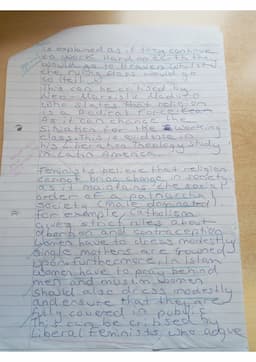 is explained as if they continue
to work hard on earth they
would go to heaven whilst
the ruling class would go
to Hell
This can be critised by
Neo-Marxist Maduro
who states that religion
is a Radical Force
as it can change the
situation for the working
class this is evident in
his Liberation Theology study
in Latin America
Feminists believe that religion
cannot bring change in society
as it maintains the social
order of a patriarchal
society (male dominated)
for example Catholism
gives strict rules about
abortion and contraception
women have to dress modestly
single mothers are frowned
upon furthermore in Islam
women have to pray behind
men and muslim women
should also dress modestly
and ensure that they are
fully covered in public
This can be critised by
Liberal Feminists who argue